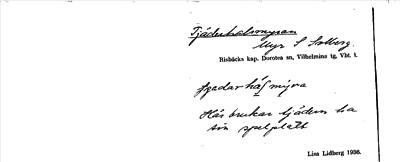 Tjäderhalsmyran
Myr S Lidberg.
Risbäcks kap. Dorotea sn, Vilhelmina tg, Vbt. l.
håsmýra
Här brukar tjädern ha
sin spelplats
Lisa Lidberg 1936.